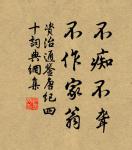 不痴不聋
不作家翁
资治通鉴唐纪四
十词典网集